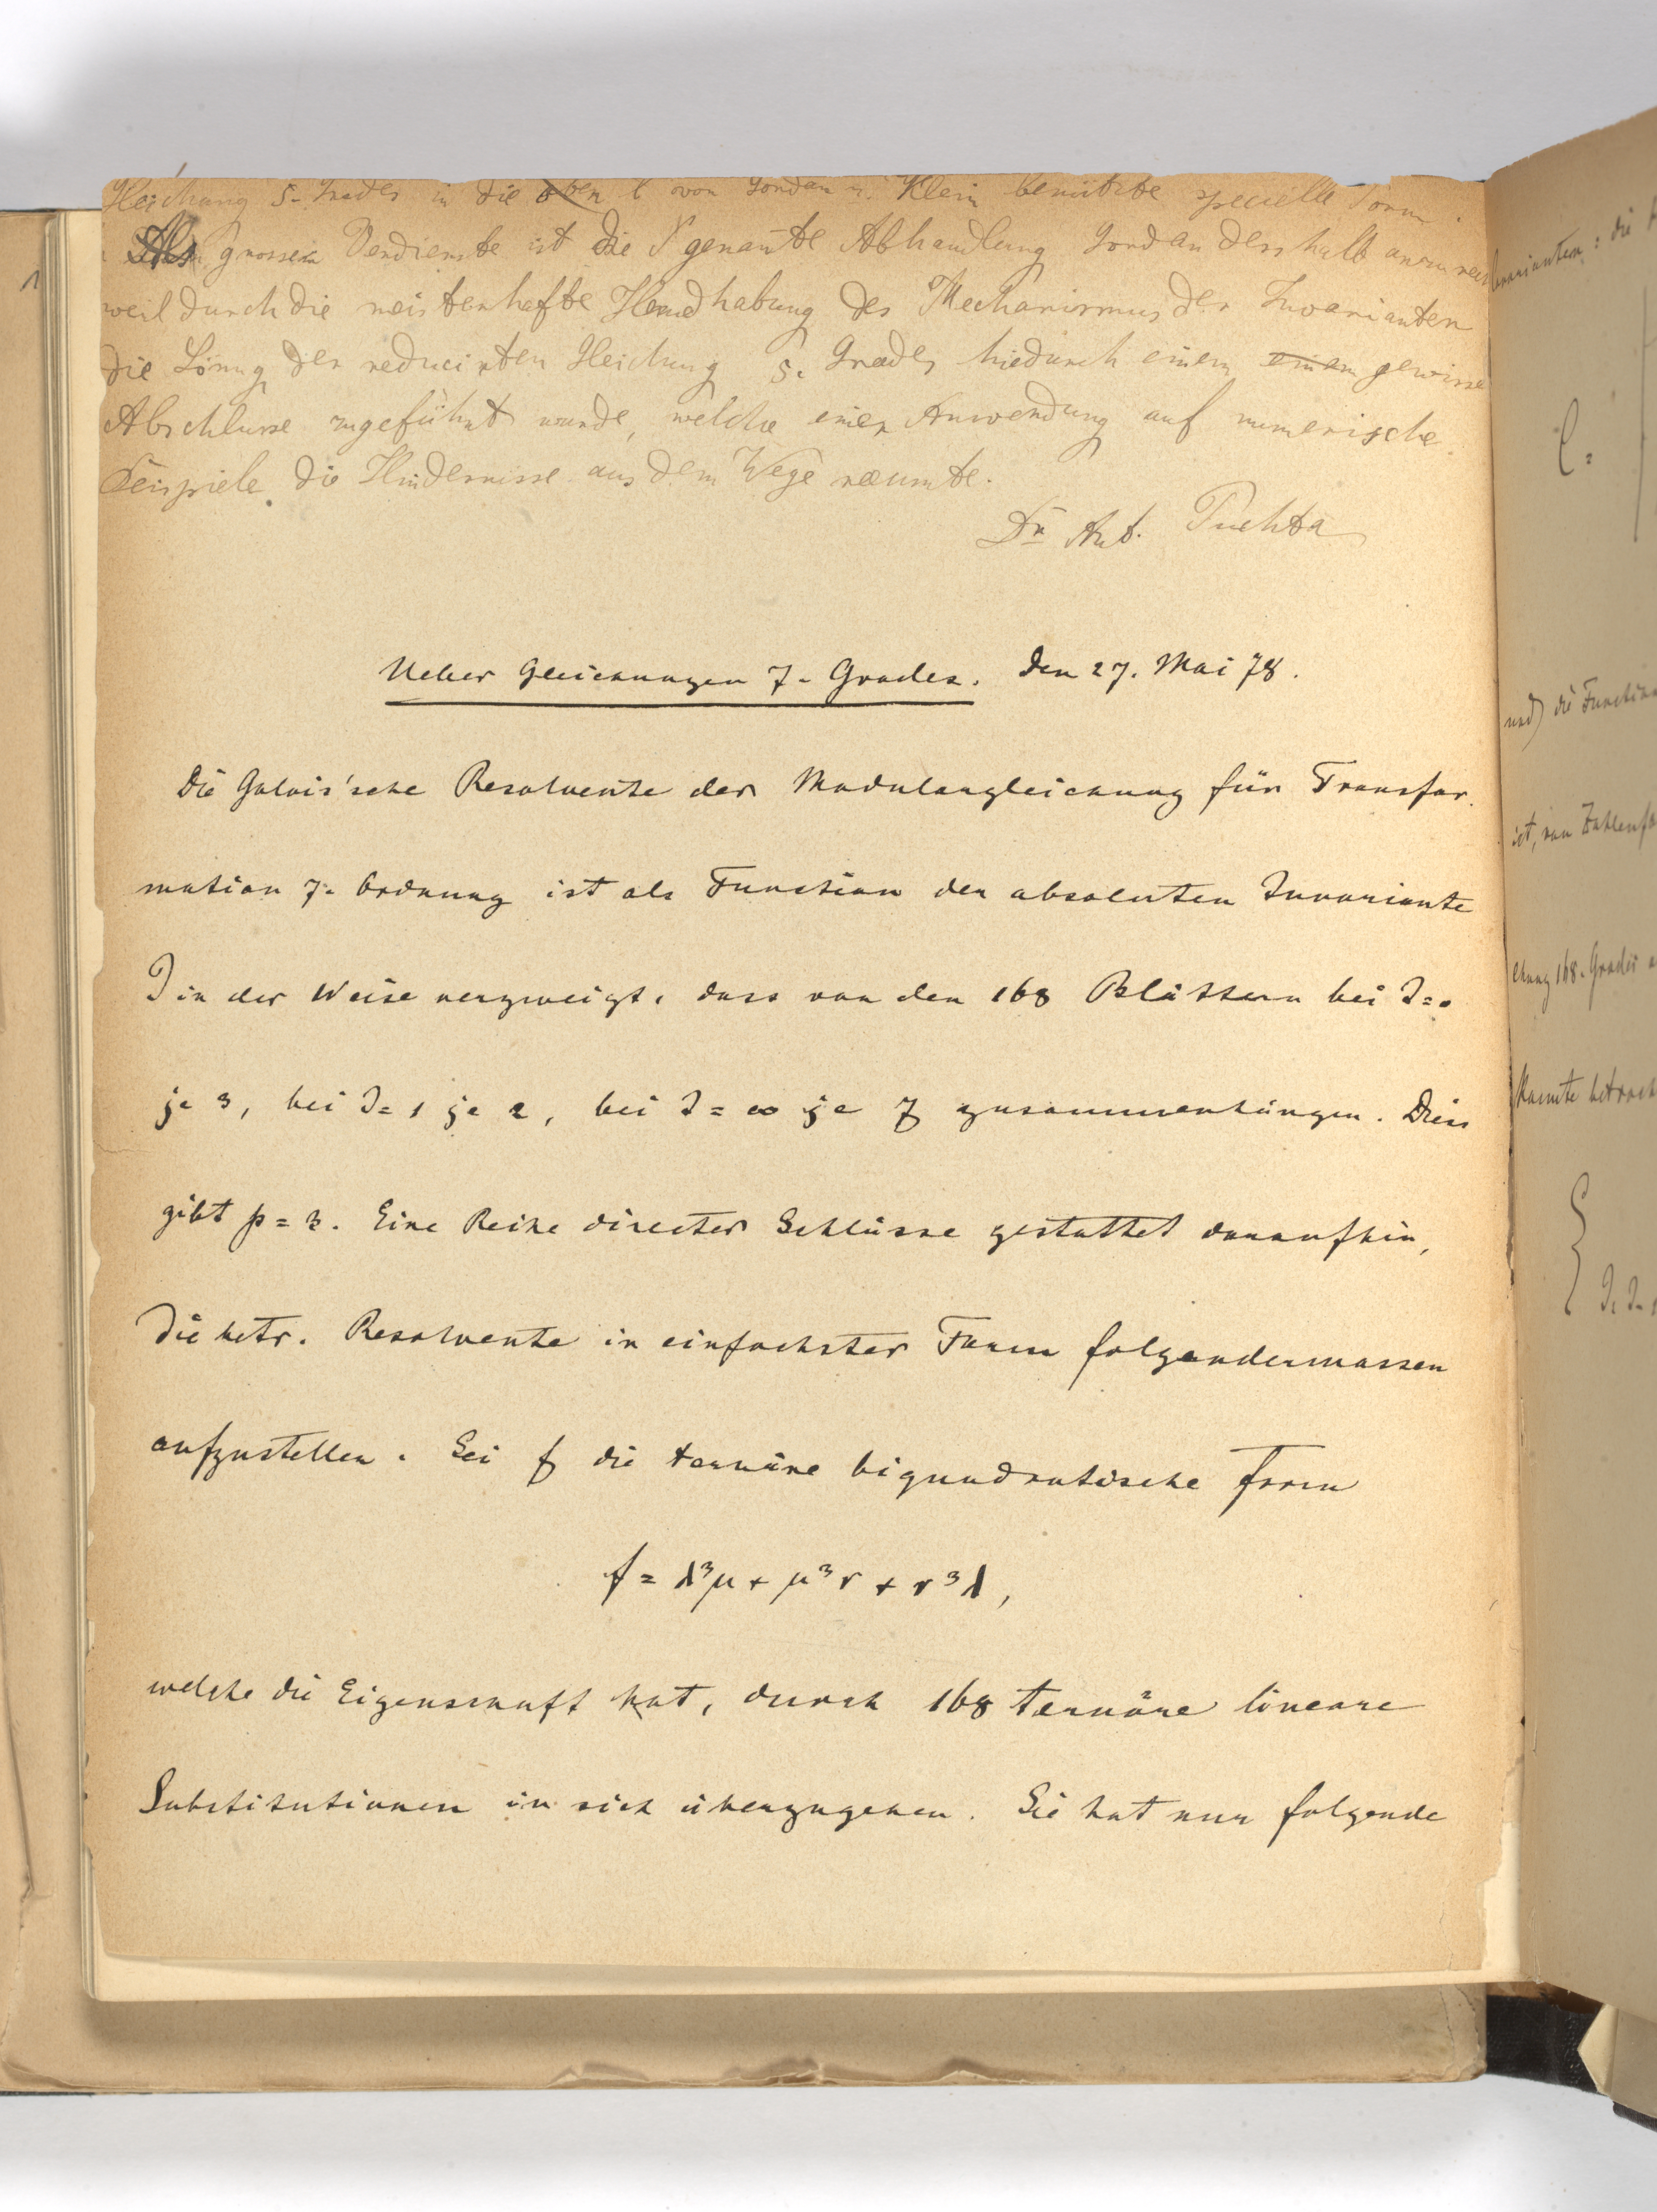 1
Gleichung 5. Grades in die von Gordan u. Klein benützte specielle Form.
Als grosses Verdienste ist die genannte Abhandlung Gordan desshalb anzurech
weil durch die meisterhafte Handhabung des Mechanismus der Invarianten
die Lösung der reducirten Gleichung 5. Grades hiedurch einem gewisse
Abschlusse zugeführt wurde, welche einer Anwendung auf numerische
Beispiele die Hindernisse aus dem Wege räumte.
Dr Ant. Puchta
Ueber Gleichungen 7. Grades. Den 27. Mai 78.
Die Galois'sche Resolvente der Modulargleichung für Transfor-
mation 7. Ordnung ist als Function der absoluten Invariante
J in der Weise verzweigt, dass von den 168 Blättern bei J=0
je 3, bei J=1 je 2, bei J=∞ je 7 zusammenhängen. Diess
gibt p=3. Eine Reihe directer Schlüsse gestattet daraufhin,
die betr. Resolvente in einfachster Form folgendermassen
aufzustellen. Sei f die ternäre biquadratische Form
f = λ³μ + μ³ν + ν³λ,
welche die Eigenschaft hat, durch 168 ternäre lineare
Substitutionen in sich überzugehen. Sie hat nur folgende
: die
und) die Function
ist, von Zahlenfa
chung 168. Grades
kannte betrach